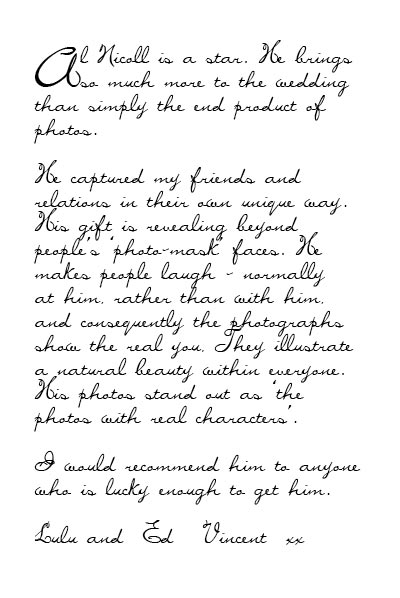 Al Nicoll is a star. He brings
so much more to the wedding
than simply the end product of
photos.
He captured my friends and
relations in their own unique way.
His gift is revealing beyond
people's 'photo-mask' faces. He
makes people laugh - normally
at him, rather than with him,
and consequently the photographs
show the real you. They illustrate
a natural beauty within everyone.
His photos stand out as 'the
photos with real characters'.
I would recommend him to anyone
who is lucky enough to get him.
Lulu and Ed Vincent xx